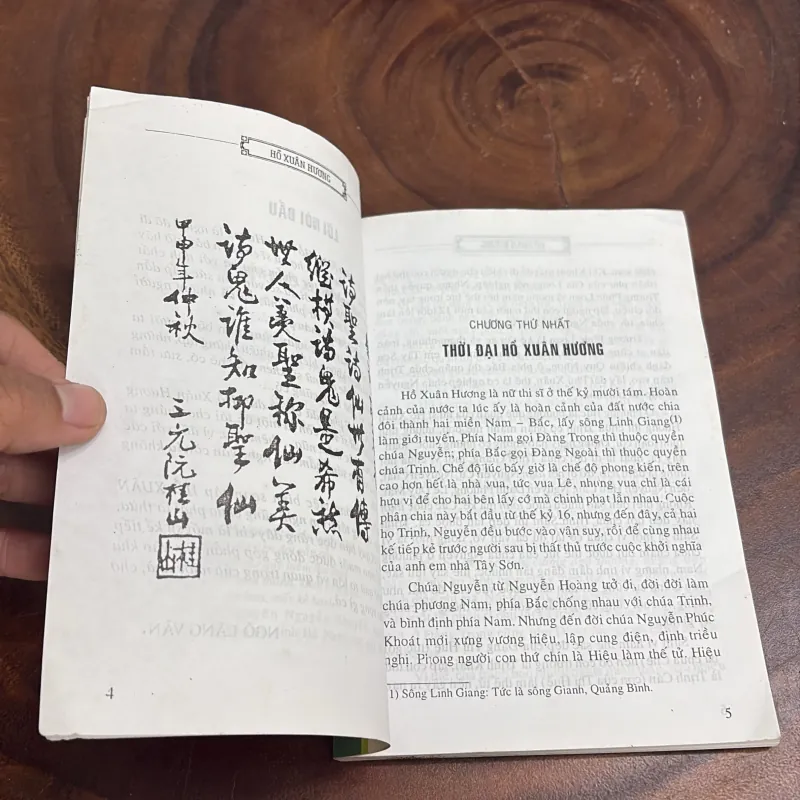 HỒ XUÂN HƯƠNG
詩聖詩仙世有傳
縱横詩鬼是希然
世人羡聖称仙美
詩鬼誰知抑聖仙
甲申年仲秋
三元阮桂山
4
CHƯƠNG THỨ NHẤT
THỜI ĐẠI HỒ XUÂN HƯƠNG
Hồ Xuân Hương là nữ thi sĩ ở thế kỷ mười tám. Hoàn
cảnh của nước ta lúc ấy là hoàn cảnh của đất nước chia
đôi thành hai miền Nam – Bắc, lấy sông Linh Giang(1)
làm giới tuyến. Phía Nam gọi Đàng Trong thì thuộc quyền
chúa Nguyễn; phía Bắc gọi Đàng Ngoài thì thuộc quyền
chúa Trịnh. Chế độ lúc bấy giờ là chế độ phong kiến, trên
cao hơn hết là nhà vua, tức vua Lê, nhưng vua chỉ là cái
hưu vị để cho hai bên lấy cớ mà chinh phạt lẫn nhau. Cuộc
phân chia này bắt đầu từ thế kỷ 16, nhưng đến đây, cả hai
họ Trịnh, Nguyễn đều bước vào vận suy, rồi để cùng nhau
kế tiếp kẻ trước người sau bị thất thủ trước cuộc khởi nghĩa
của anh em nhà Tây Sơn.
Chúa Nguyễn từ Nguyễn Hoàng trở đi, đời đời làm
chúa phương Nam, phía Bắc chống nhau với chúa Trịnh,
và bình định phía Nam. Nhưng đến đời chúa Nguyễn Phúc
Khoát mới xưng vương hiệu, lập cung điện, định triều
nghị. Phong người con thứ chín là Hiệu làm thế tử. Hiệu
1) Sông Linh Giang: Tức là sông Gianh, Quảng Bình.
5